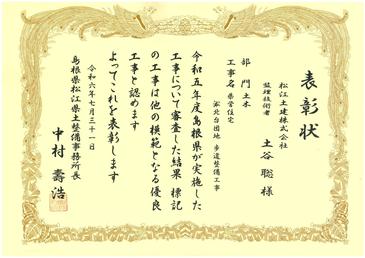 表彰状
松江土建株式会社
監理技術者
土谷 聡 様
部門 土木
工事名 県営住宅
淞北台団地 歩道整備工事
令和五年度島根県が実施した
工事について審査した結果 標記
の工事は他の模範となる優良
工事と認めます
よってこれを表彰します
令和六年七月三十一日
島根県松江県土整備事務所長
中村 壽浩